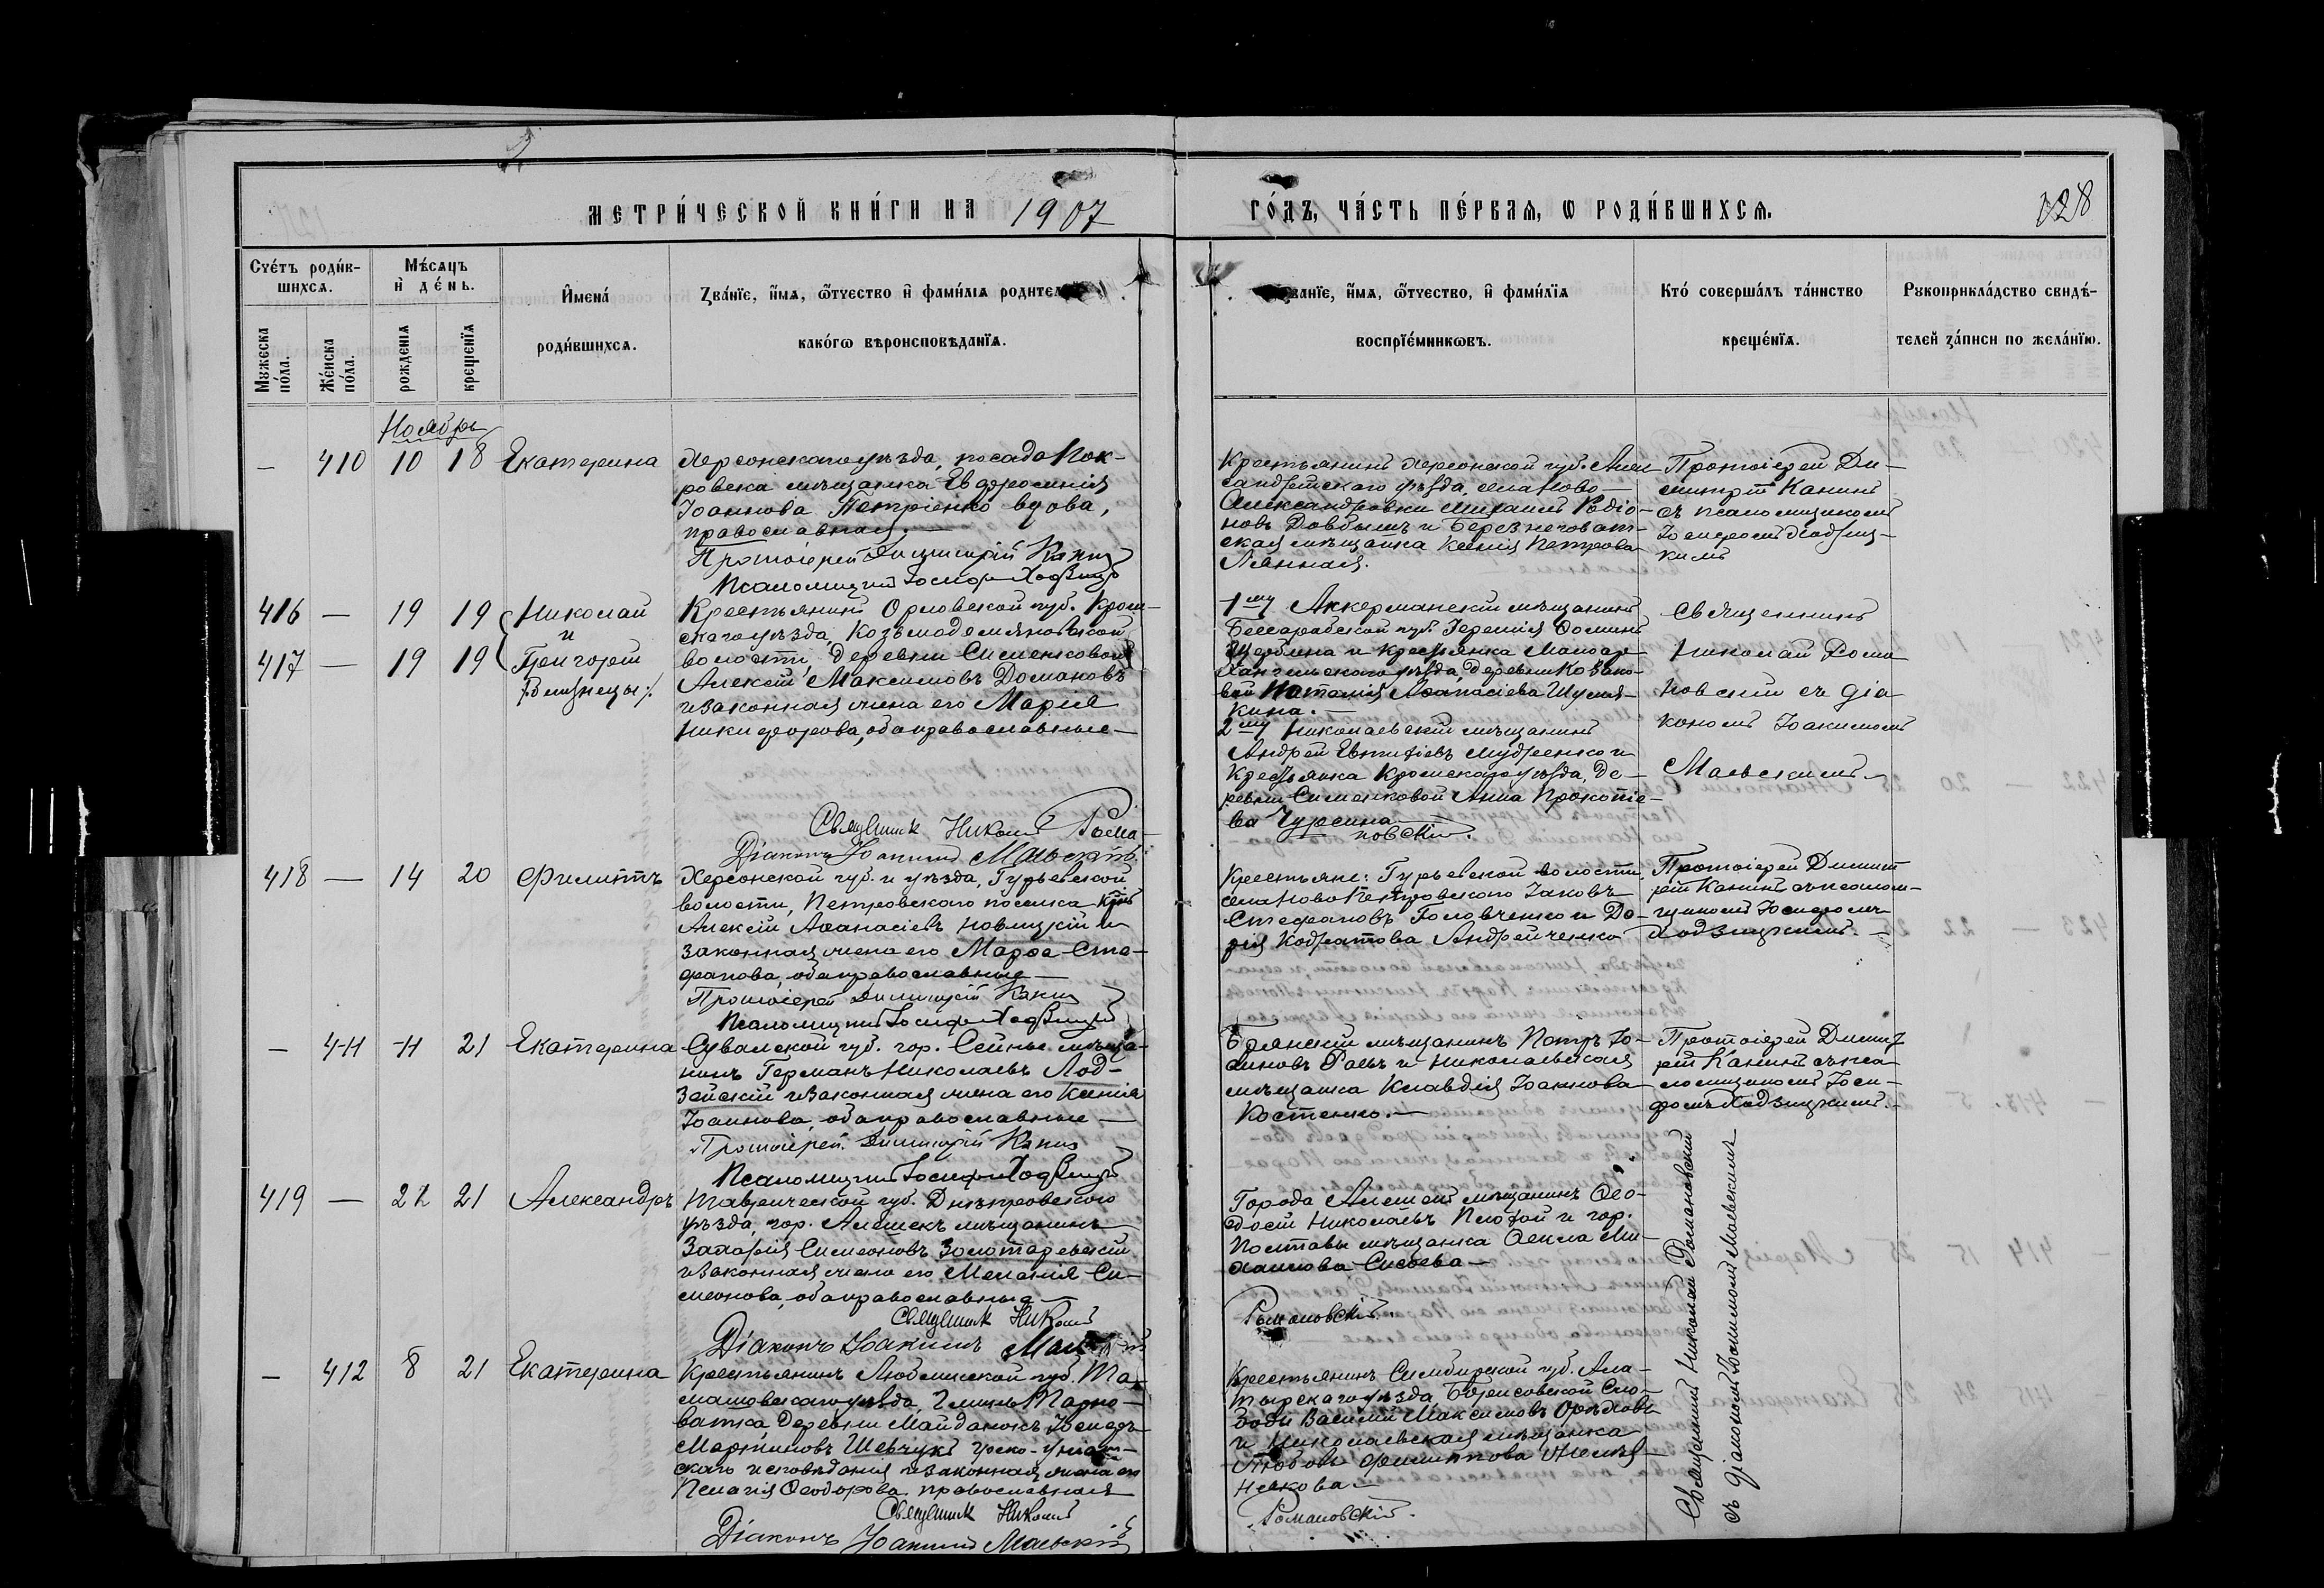 МЕТРИ́ЧЕСКОЙ КНИ́ГИ НА 1907
ГО́ДЪ, ЧА́СТЬ ПЕ́РВАѦ, Ѡ РОДИ́ВШИХСѦ.
128
Счетъ роди́в-
шихсѧ.
Мѣ́сѧцъ
и де́нь.
Имена́
роди́вшихсѧ.
Зва́нїе, и́мѧ, ѻ́тчество и фами́лїѧ
како́гѡ вѣроисповѣ́данїѧ.
Мꙋжеска
по́ла.
Же́нска
по́ла.
рожденїѧ
крещенїѧ
и́мѧ, ѻ́тчество, и фами́лїѧ
воспрїе́мникѡвъ.
Кто́ соверша́лъ та́инство
креще́нїѧ.
Рꙋкоприкла́дство свидѣ́-
телей за́писи по жела́нїю.
Ноябрь
— 410 10 18 Екатерина
Херсонскаго уѣзда, посада Пок-
ровска мѣщанка Евфросинія
Іоаннова Петріенко вдова,
православная. —
Протоіерей Димитрій Канин
Псаломщикъ Іосифъ
Крестьянинъ Херсонской губ. Алек-
сандрійскаго уѣзда, села Ново-
Александровки Михаилъ Родіо-
новъ Довбышъ и Березнеговат-
ская мѣщанка Ксенія Петрова
Протоіерей Ди-
митрій Канинъ
съ псаломщикомъ
416 — 19 19 Николай
и
417 — 19 19 Григорій
/близнецы/.
Крестьянинъ Орловской губ. Кром-
скаго уѣзда, Козьмодемяновской
волости, деревни Сименковой
Алексій Максимовъ Домановъ
и законная жена его Марія
Никифорова, оба православные —
Священникъ Николай Рома-
новскій.
Діаконъ Іоакимъ Маевскій.
1му Аккерманскій мѣщанинъ
Бессарабской губ. Іеремія Ѳоминъ
Щербина и крестьянка Малоар-
хангельскаго уѣзда, деревни
Наталія Аѳанасіева
кина. —
2му Николаевскій мѣщанинъ
Андрей Евтихіевъ Мудренко и
крестьянка Кромскаго уѣзда, де-
ревни Сименковой Анна Прокопіе-
ва Чурсина
Священникъ
Николай Рома
новскій съ діа
кономъ Іоакимомъ
Маевскимъ
418 — 14 20 Филиппъ
Херсонской губ. и уѣзда, Гурьевской
волости, Петровскаго поселка кр.
Алексій Аѳанасіевъ Новицкій и
законная жена его Марѳа Сте-
фанова, оба православные —
Протоіерей Димитрій Канин
Псаломщикъ Іосифъ
Крестьяне: Гурьевской волости,
села Ново Петровскаго Іаковъ
Стефановъ Головченко и Да-
рія Кодратова Андрейченко
Протоіерей Димит
рій Канинъ съ псалом-
щикомъ Іосифомъ
Ходзицкимъ. —
— 411 11 21 Екатерина
Сувалкской губ. гор. Сейны мѣща-
нинъ Германъ Николаевъ Лод-
зейскій и законная жена его Ксенія
Іоаннова, оба православные —
Протоіерей Димитрій Канин
Псаломщикъ Іосифъ
Брянскій мѣщанинъ Петръ Іо-
анновъ Раевъ и Николаевская
мѣщанка Клавдія Іоаннова
Костенко. —
Протоіерей Димит
рій Канинъ съ пса-
ломщикомъ Іоси-
фомъ Ходзицкимъ. —
419 — 21 Александръ
Таврической губ. Днѣпровскаго
уѣзда, гор. Алешекъ мѣщанинъ
Захарія Симеоновъ Золотаревскій
и законная жена его Меланія Си-
меонова, оба православные —
Священникъ Николай
Романовскій.
Діаконъ Іоакимъ
Города Алешекъ мѣщанинъ Ѳео-
досій Николаевъ и гор.
Полтавы мѣщанка Ѳекла Ми-
хаилова Сисоева —
Священникъ Николай Романовскій
съ діакономъ Іоакимомъ Маевскимъ
— 412 8 21 Екатерина
Крестьянинъ Люблинской губ. То-
машовскаго уѣзда, Гмины Тарно-
ватка, деревни Майданокъ, Іосифъ
Мартиновъ Шевчукъ греко-уніат-
скаго исповѣданія и законная жена его
Пелагія Ѳеодорова православная
Священникъ Николай
Романовскій.
Діаконъ Іоакимъ Маевскій
Крестьянинъ Симбирской губ. Ала-
тырскаго уѣзда, Борисовской Сло-
боды Василій Максимовъ Орѣховъ
и Николаевская мѣщанка
Любовь Филиппова